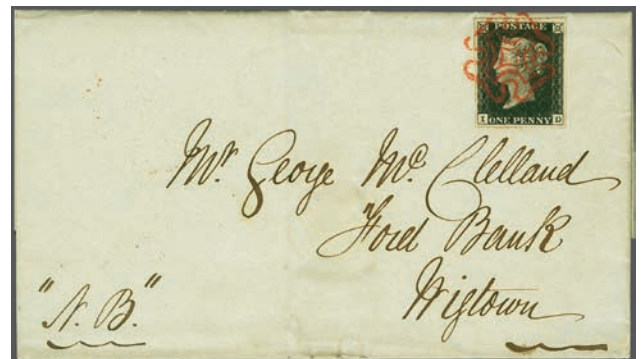 POSTAGE
I ONE PENNY D
Mr. George Mc. Clelland
Ford Bank
Wigtown
"N. B."